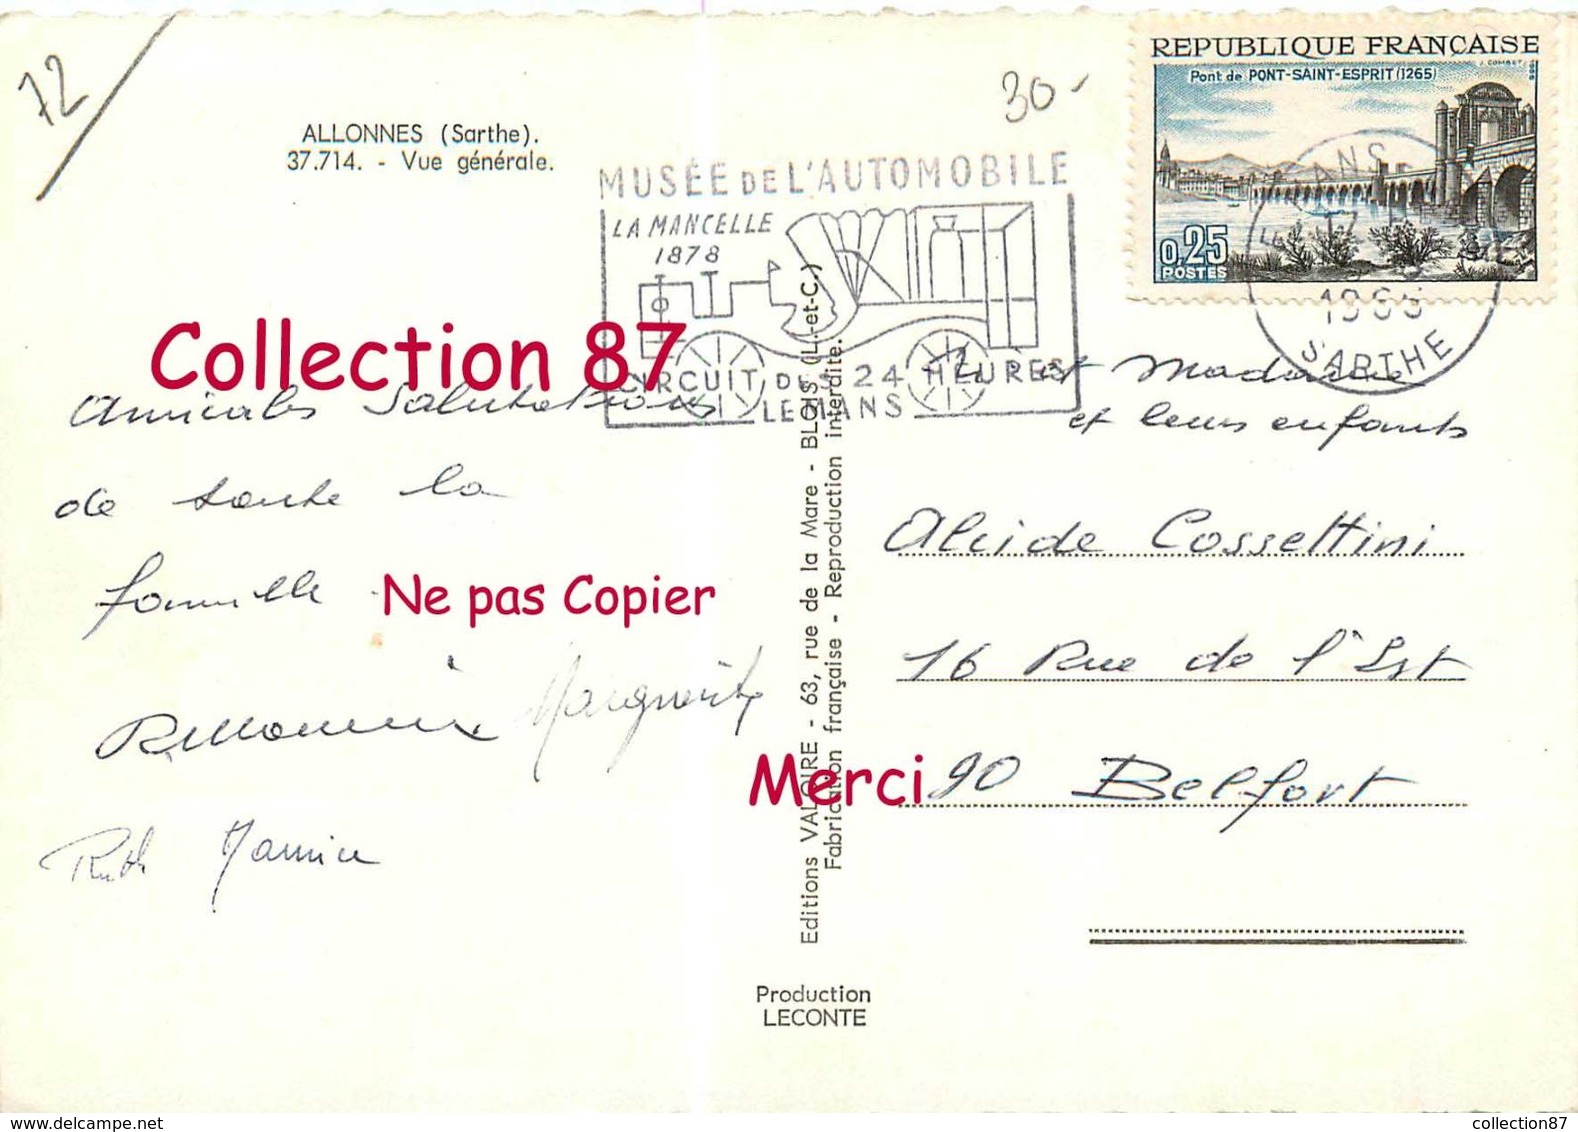 72
30-
REPUBLIQUE FRANÇAISE
Pont de PONT-SAINT-ESPRIT (1265)
J. COMBET
0,25
POSTES
ALLONNES (Sarthe).
37.714. - Vue générale.
MUSÉE DE L'AUTOMOBILE
LA MANCELLE
1878
CIRCUIT DES 24 HEURES
LE MANS
MANS
SARTHE
Collection 87
Amicales Salutations
de toute la
famille
Ne pas Copier
Marguerite
Ruth
Merci
et Madame
et leurs enfants
Alcide Cossettini
16 Rue de l'Est
90 Belfort
Editions VALOIRE - 63, rue de la Mare - BLOIS (L.-et-C.)
Fabrication française - Reproduction interdite.
Production
LECONTE
www.delcampe.net
collection87